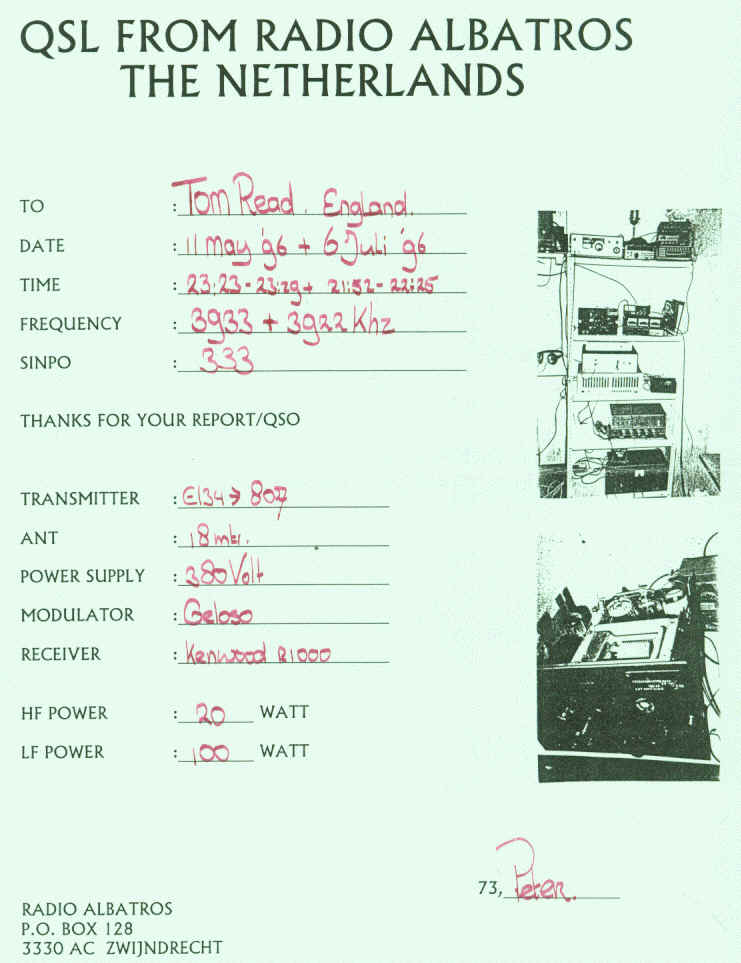 QSL FROM RADIO ALBATROS
THE NETHERLANDS
TO : Tom Read. England.
DATE : 11 May '96 + 6 Juli '96
TIME : 23:23 - 23:29 + 21:52 - 22:25
FREQUENCY : 3933 + 3922 Khz
SINPO : 333
THANKS FOR YOUR REPORT/QSO
TRANSMITTER : El34 → 807
ANT : 18 mtr.
POWER SUPPLY : 380 Volt
MODULATOR : Geloso
RECEIVER : Kenwood R1000
HF POWER : 20 WATT
LF POWER : 100 WATT
73, Peter.
RADIO ALBATROS
P.O. BOX 128
3330 AC ZWIJNDRECHT